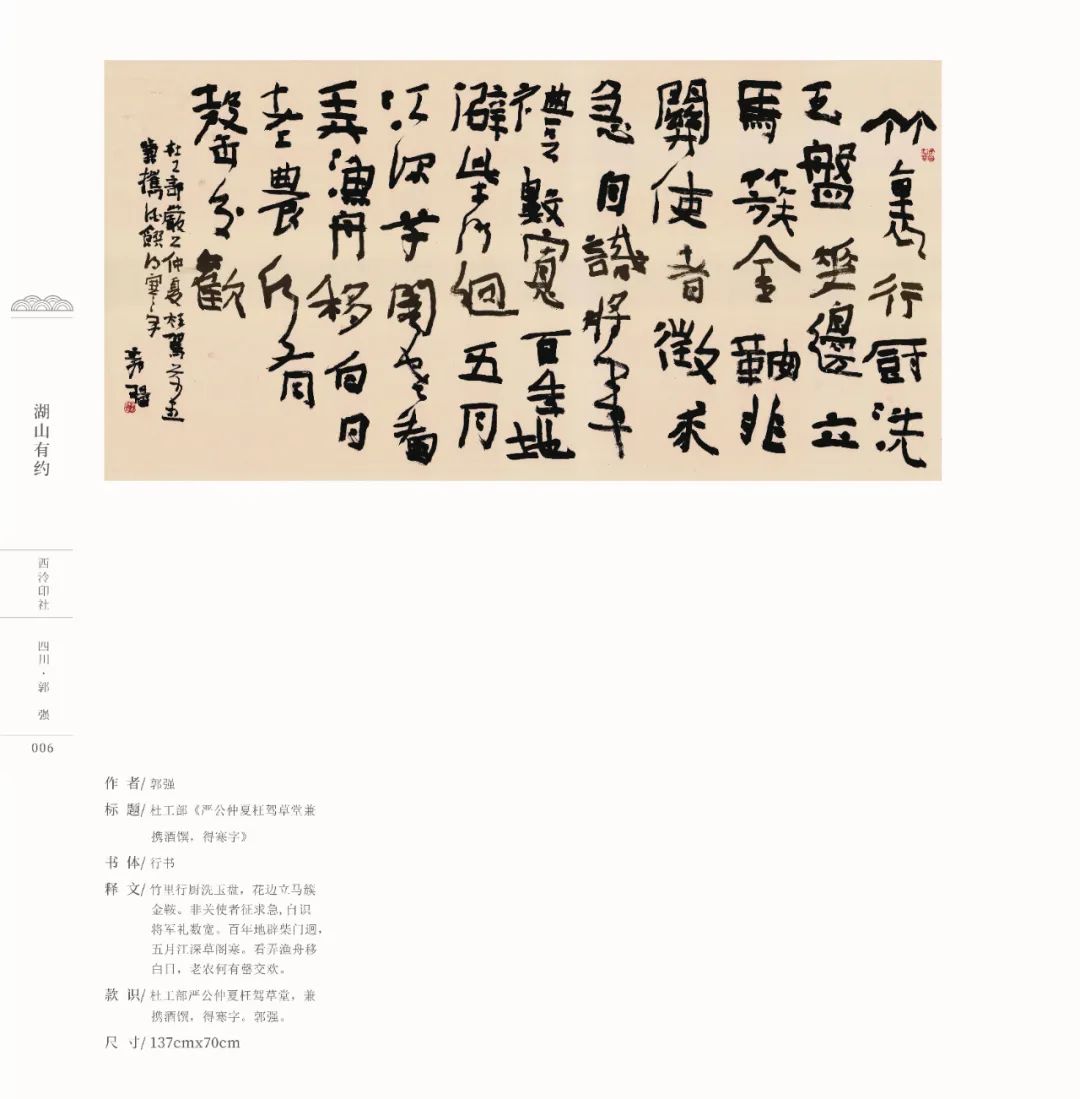 竹裏行厨洗
玉盤花邊立
馬簇金鞍非
關使者徵求
急自識將軍
禮數寬百年地
僻柴門迥五月
江深草閣寒看
弄漁舟移白日
老農何有
罄交歡
杜工部嚴公仲夏枉駕草堂
兼攜酒饌得寒字
郭强
湖山有约
西泠印社
四川·郭 强
006
作 者/ 郭强
标 题/ 杜工部《严公仲夏枉驾草堂兼
携酒馔，得寒字》
书 体/ 行书
释 文/ 竹里行厨洗玉盘，花边立马簇
金鞍。非关使者征求急,自识
将军礼数宽。百年地辟柴门迥，
五月江深草阁寒。看弄渔舟移
白日，老农何有罄交欢。
款 识/ 杜工部严公仲夏枉驾草堂，兼
携酒馔，得寒字。郭强。
尺 寸/ 137cmx70cm